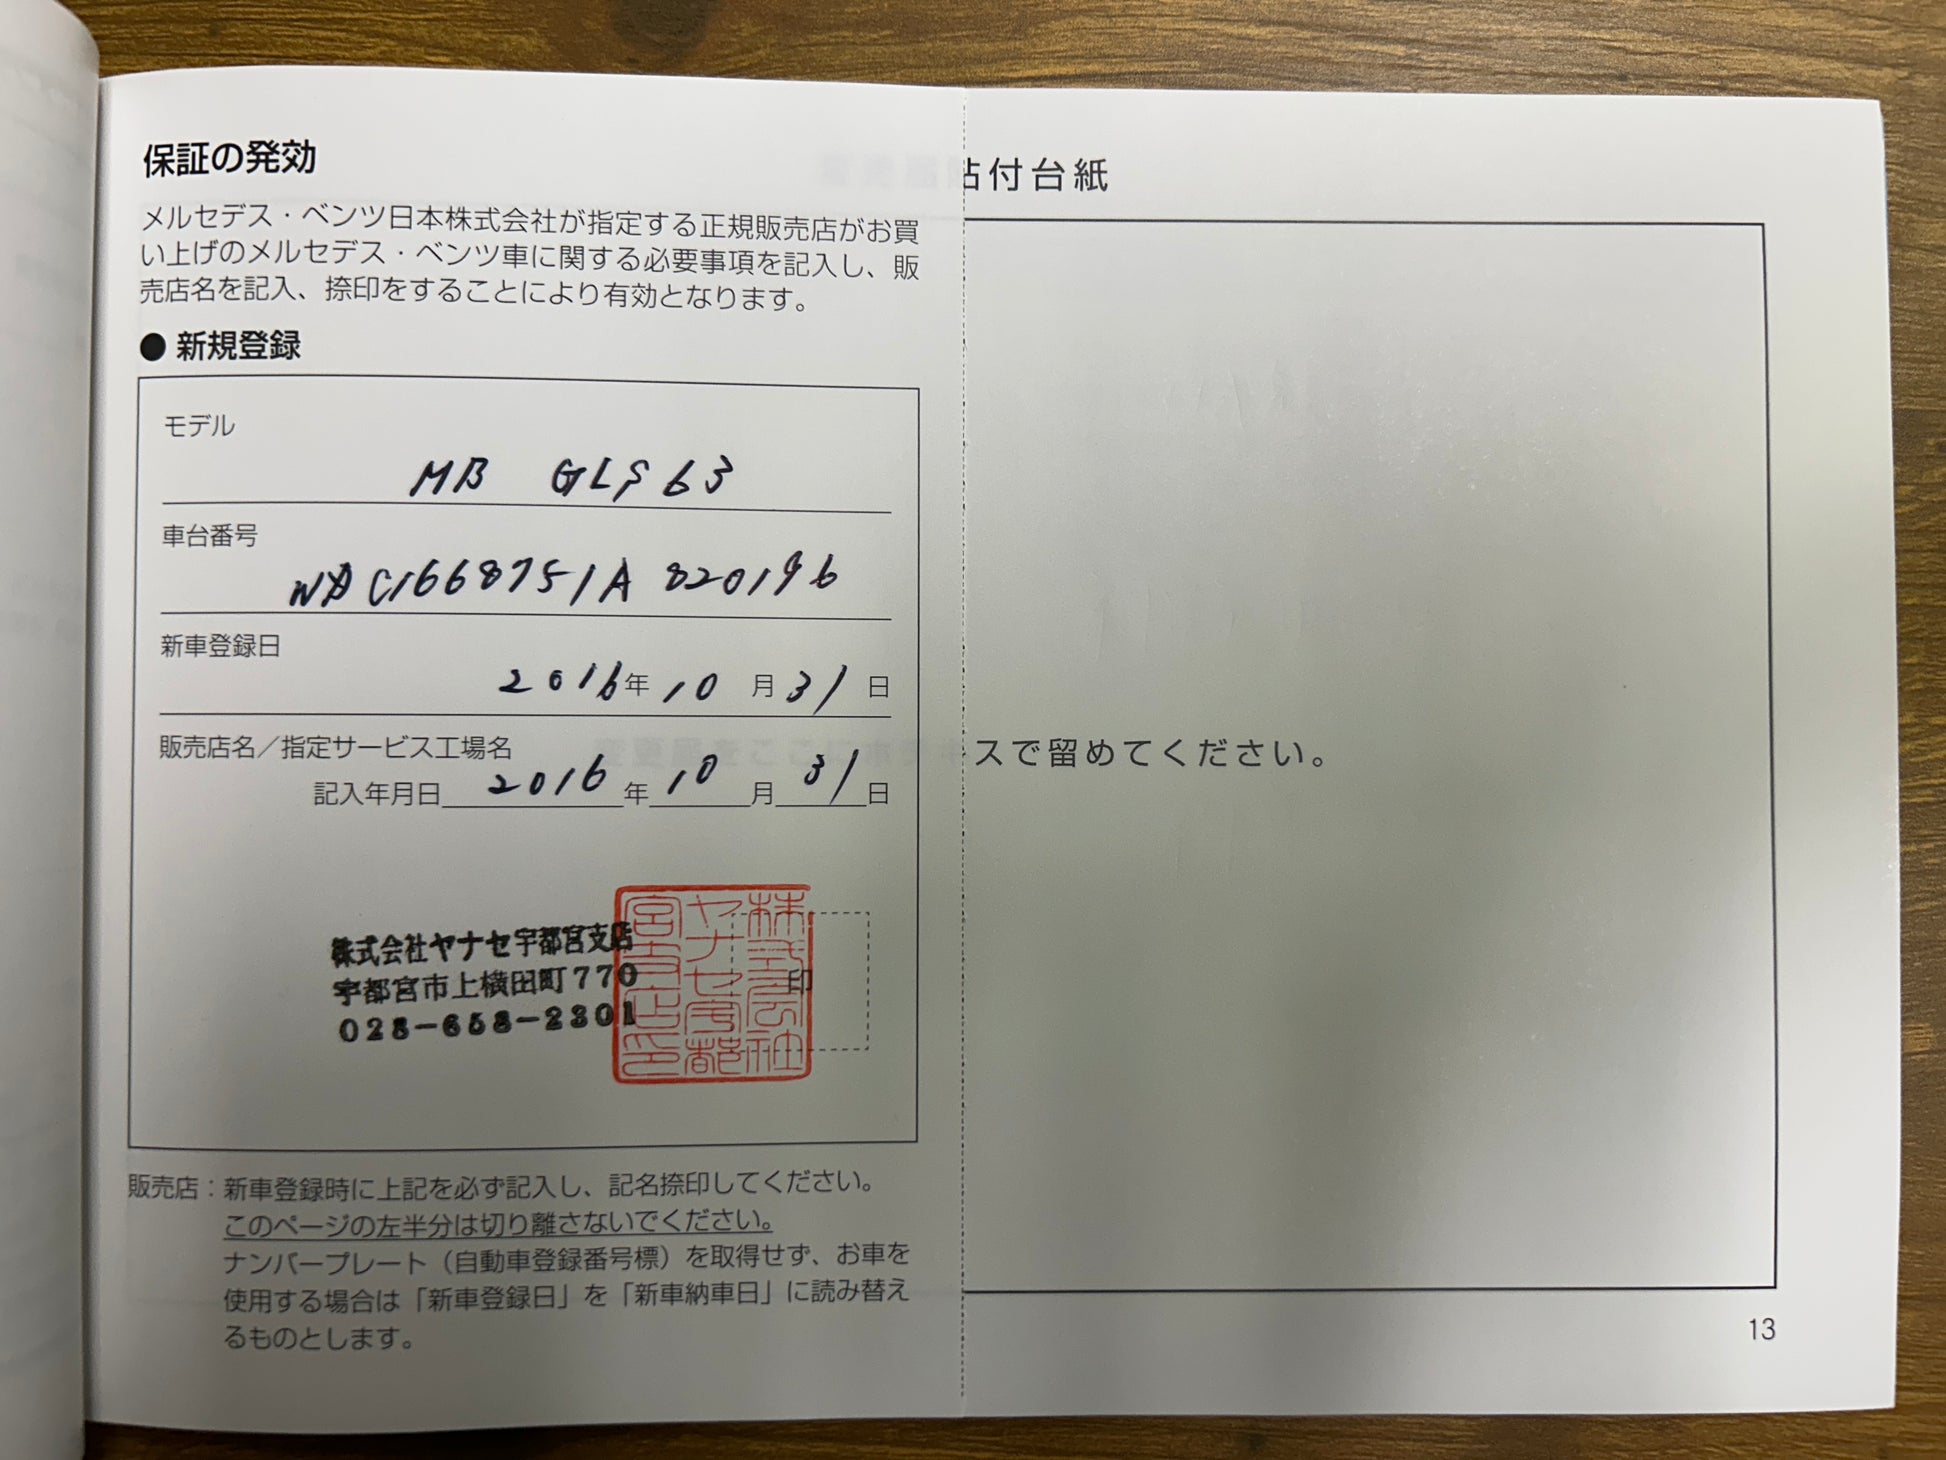 保証の発効
メルセデス・ベンツ日本株式会社が指定する正規販売店がお買
い上げのメルセデス・ベンツ車に関する必要事項を記入し、販
売店名を記入、捺印をすることにより有効となります。
● 新規登録
モデル
MB GLS63
車台番号
WDC1668751A820196
新車登録日
2016年10月31日
販売店名／指定サービス工場名
記入年月日 2016年10月31日
株式会社ヤナセ宇都宮支店
宇都宮市上横田町770
028-658-2301
印
株式会社
ヤナセ宇都
宮支店印
販売店：新車登録時に上記を必ず記入し、記名捺印してください。
このページの左半分は切り離さないでください。
ナンバープレート（自動車登録番号標）を取得せず、お車を
使用する場合は「新車登録日」を「新車納車日」に読み替え
るものとします。
付台紙
スで留めてください。
13